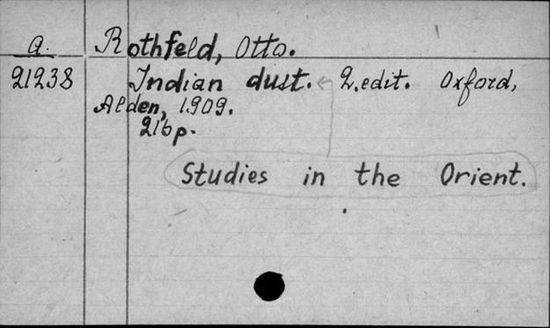 a. Rothfeld, Otto.
21238 Indian dust. 2.edit. Oxford,
Alden, 1909.
216p.
Studies in the Orient.